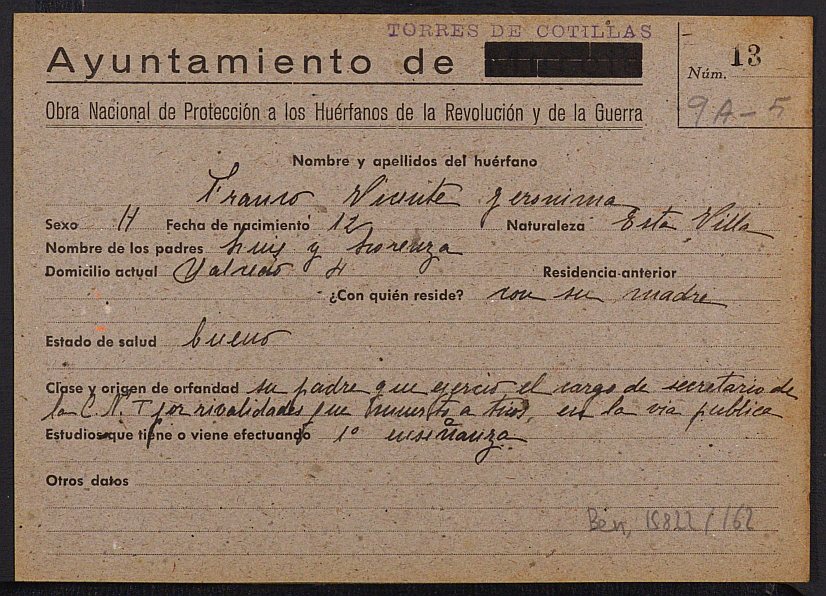 TORRES DE COTILLAS
Ayuntamiento de
Núm. 13
9A-5
Obra Nacional de Protección a los Huérfanos de la Revolución y de la Guerra
Nombre y apellidos del huérfano
Franco Vicente Jeronima
Sexo H Fecha de nacimiento 12 Naturaleza Esta Villa
Nombre de los padres Luis y Lorenza
Domicilio actual 4 Residencia anterior
¿Con quién reside? con su madre
Estado de salud bueno
Clase y origen de orfandad su padre que ejercio el cargo de secretario de
la C.N.T por rivalidades fue muerto a tiros, en la via publica
Estudios que tiene o viene efectuando 1º enseñanza
Otros datos
Ben, 15822/162